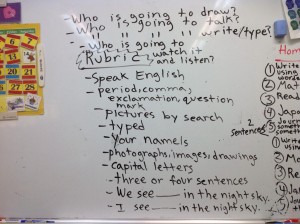 -Who is going to draw?
-Who is going to talk?
- " " " " " write/type?
-Who is going to
watch it
and listen?
Rubric
-Speak English
-period, comma,
exclamation, question
mark
-pictures by search
-typed
-your name/s
-photographs, images, drawings
-capital letters
-three or four sentences
-We see ___ in the night sky.
-I see ___ in the night sky.
2
sentences
Home
① Write
using
words
② Mat
③ Read
④ Japa
⑤ Journ
① Write
using
② Mat
③ Rea
④ Ja